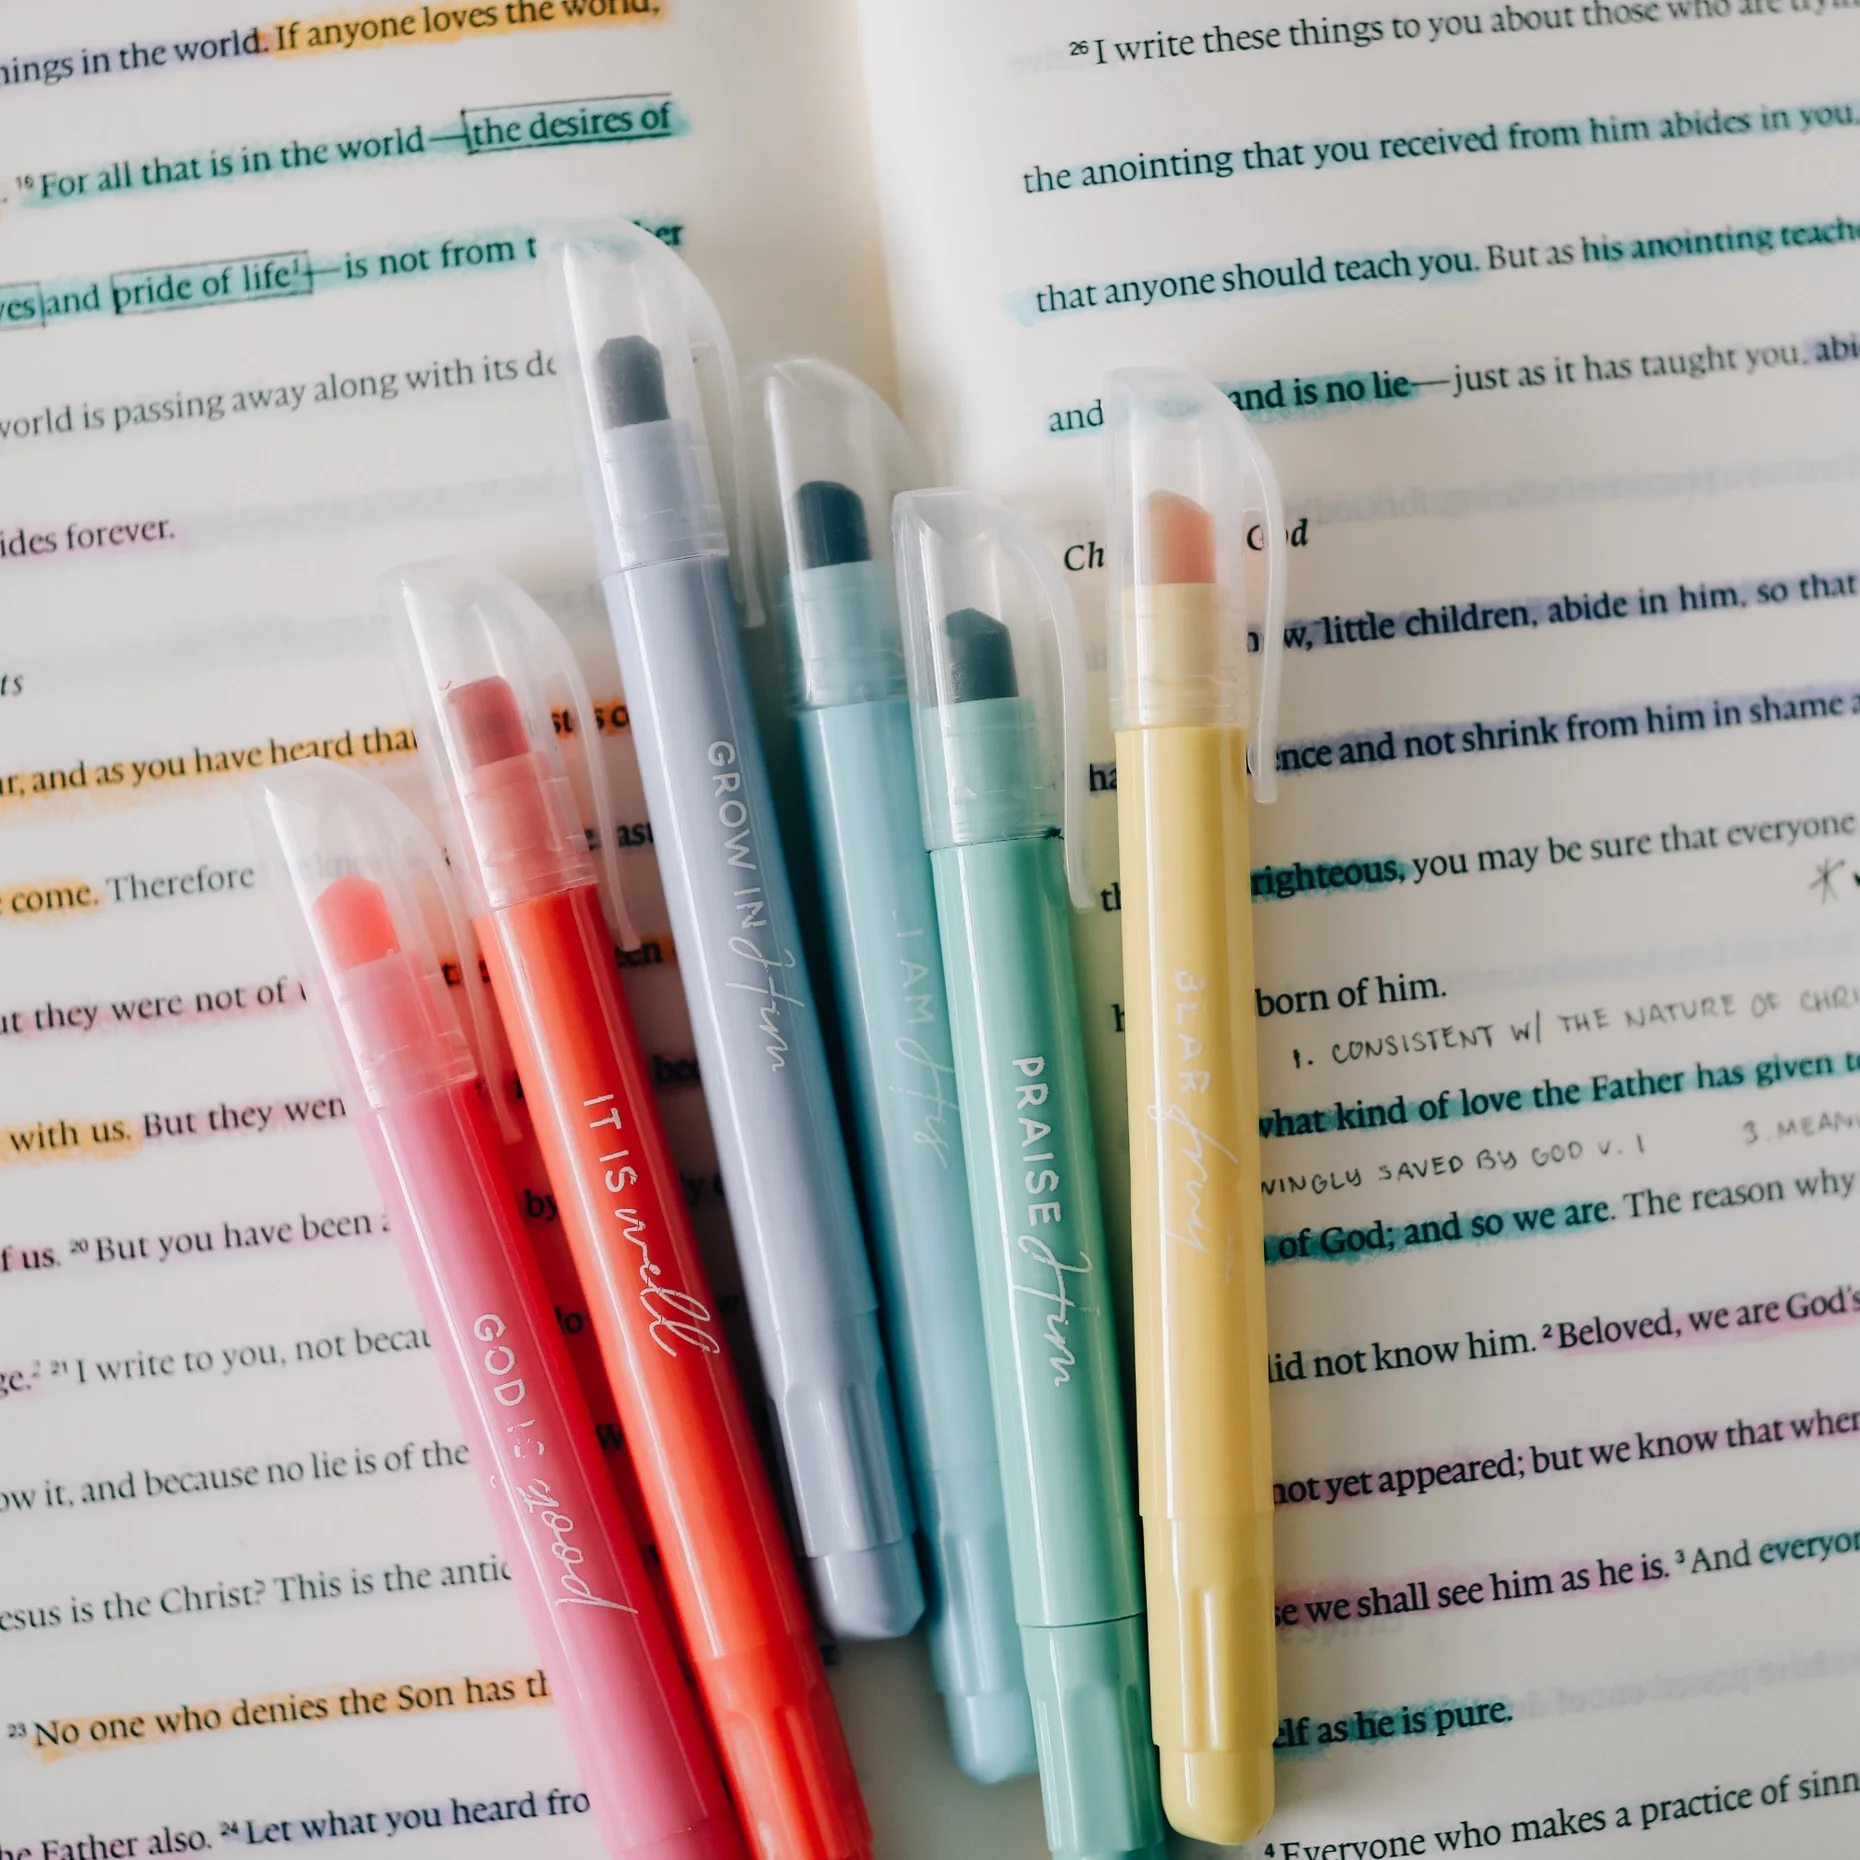 hings in the world. If anyone loves the world,
. 16 For all that is in the world—the desires of
yes and pride of life¹—is not from t er
world is passing away along with its de
ides forever.
ts
ar, and as you have heard that
come. Therefore
ut they were not of
with us. But they wen
f us. 20 But you have been a by
ge.² 21 I write to you, not becau
ow it, and because no lie is of the
esus is the Christ? This is the antic
23 No one who denies the Son has th
he Father also. 24 Let what you heard fro
GOD IS good
IT IS well
GROW IN Him
I AM His
PRAISE Him
BEAR fruit
26 I write these things to you about those who are tryin
the anointing that you received from him abides in you,
that anyone should teach you. But as his anointing teache
and and is no lie—just as it has taught you, abi
Ch God
w, little children, abide in him, so that
ha ence and not shrink from him in shame a
th righteous, you may be sure that everyone
born of him.
1. CONSISTENT W/ THE NATURE OF CHRI
what kind of love the Father has given to
WINGLY SAVED BY GOD V. 1 3. MEAN
of God; and so we are. The reason why
did not know him. 2 Beloved, we are God's
not yet appeared; but we know that when
se we shall see him as he is. 3 And everyon
elf as he is pure.
4 Everyone who makes a practice of sinn